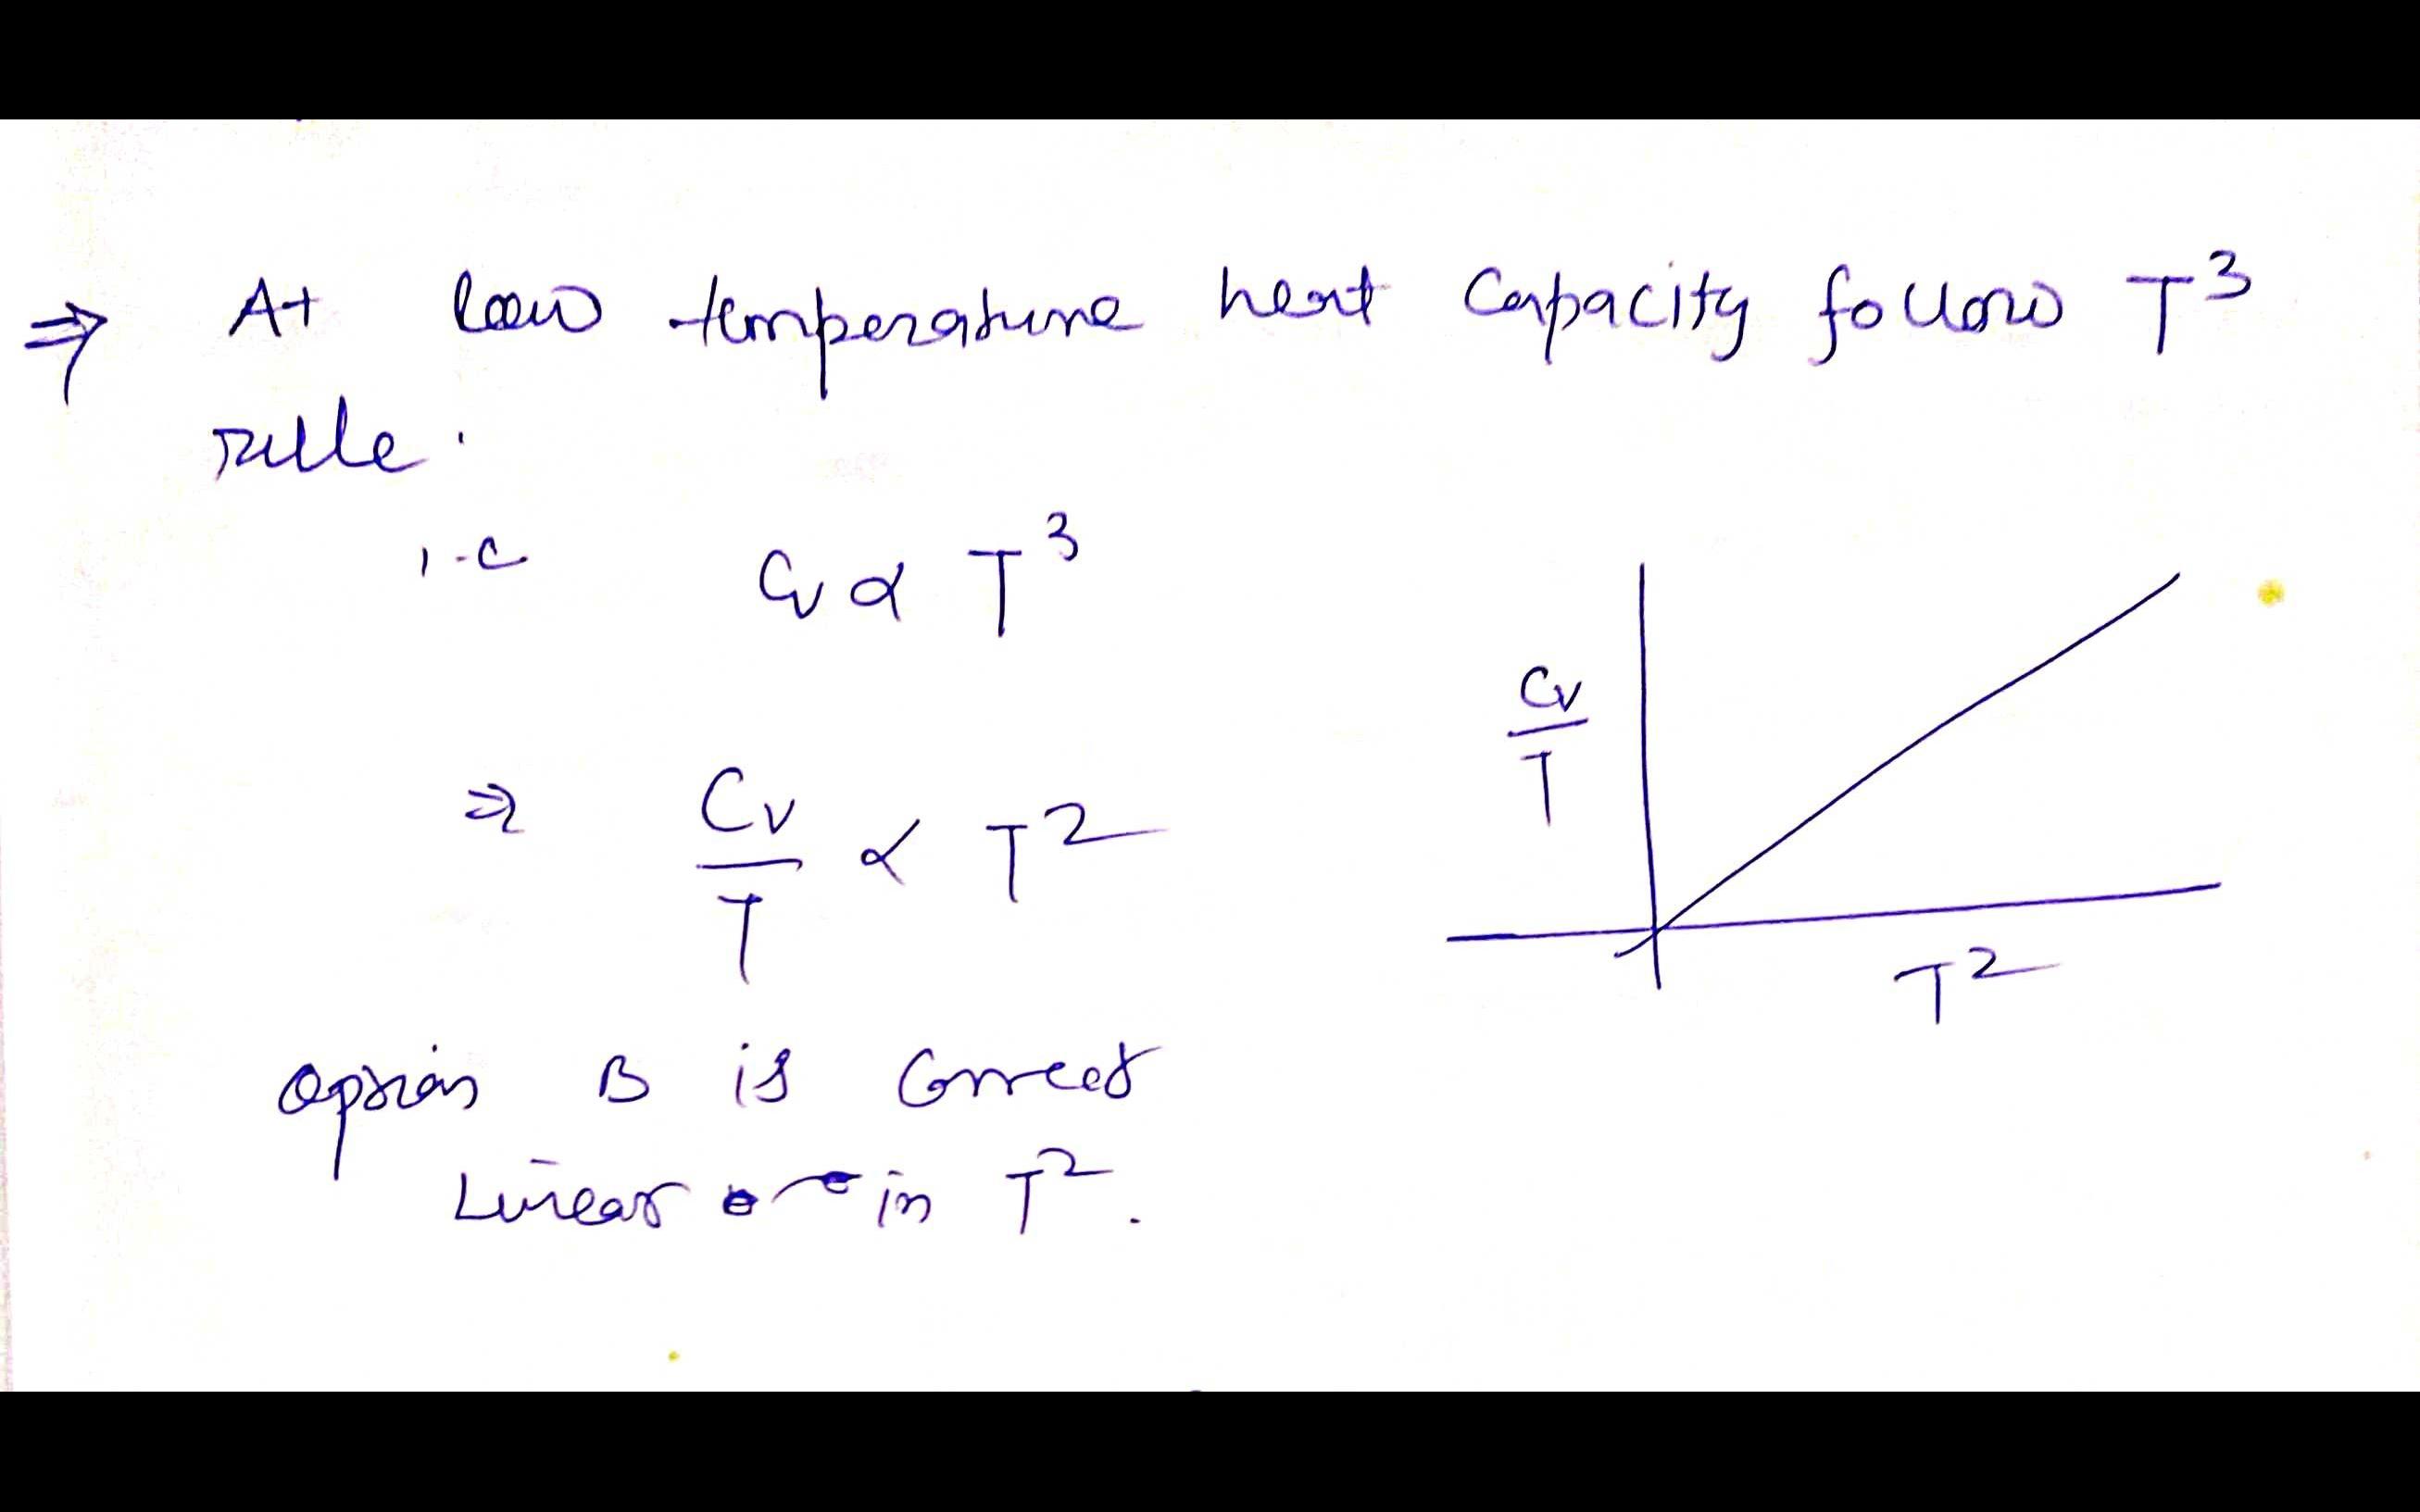 ⇒ At low temperature heat capacity follows T³
rule.
i.e Cv ∝ T³
⇒ Cv/T ∝ T²
Cv/T
T²
option B is correct
Linear in T².